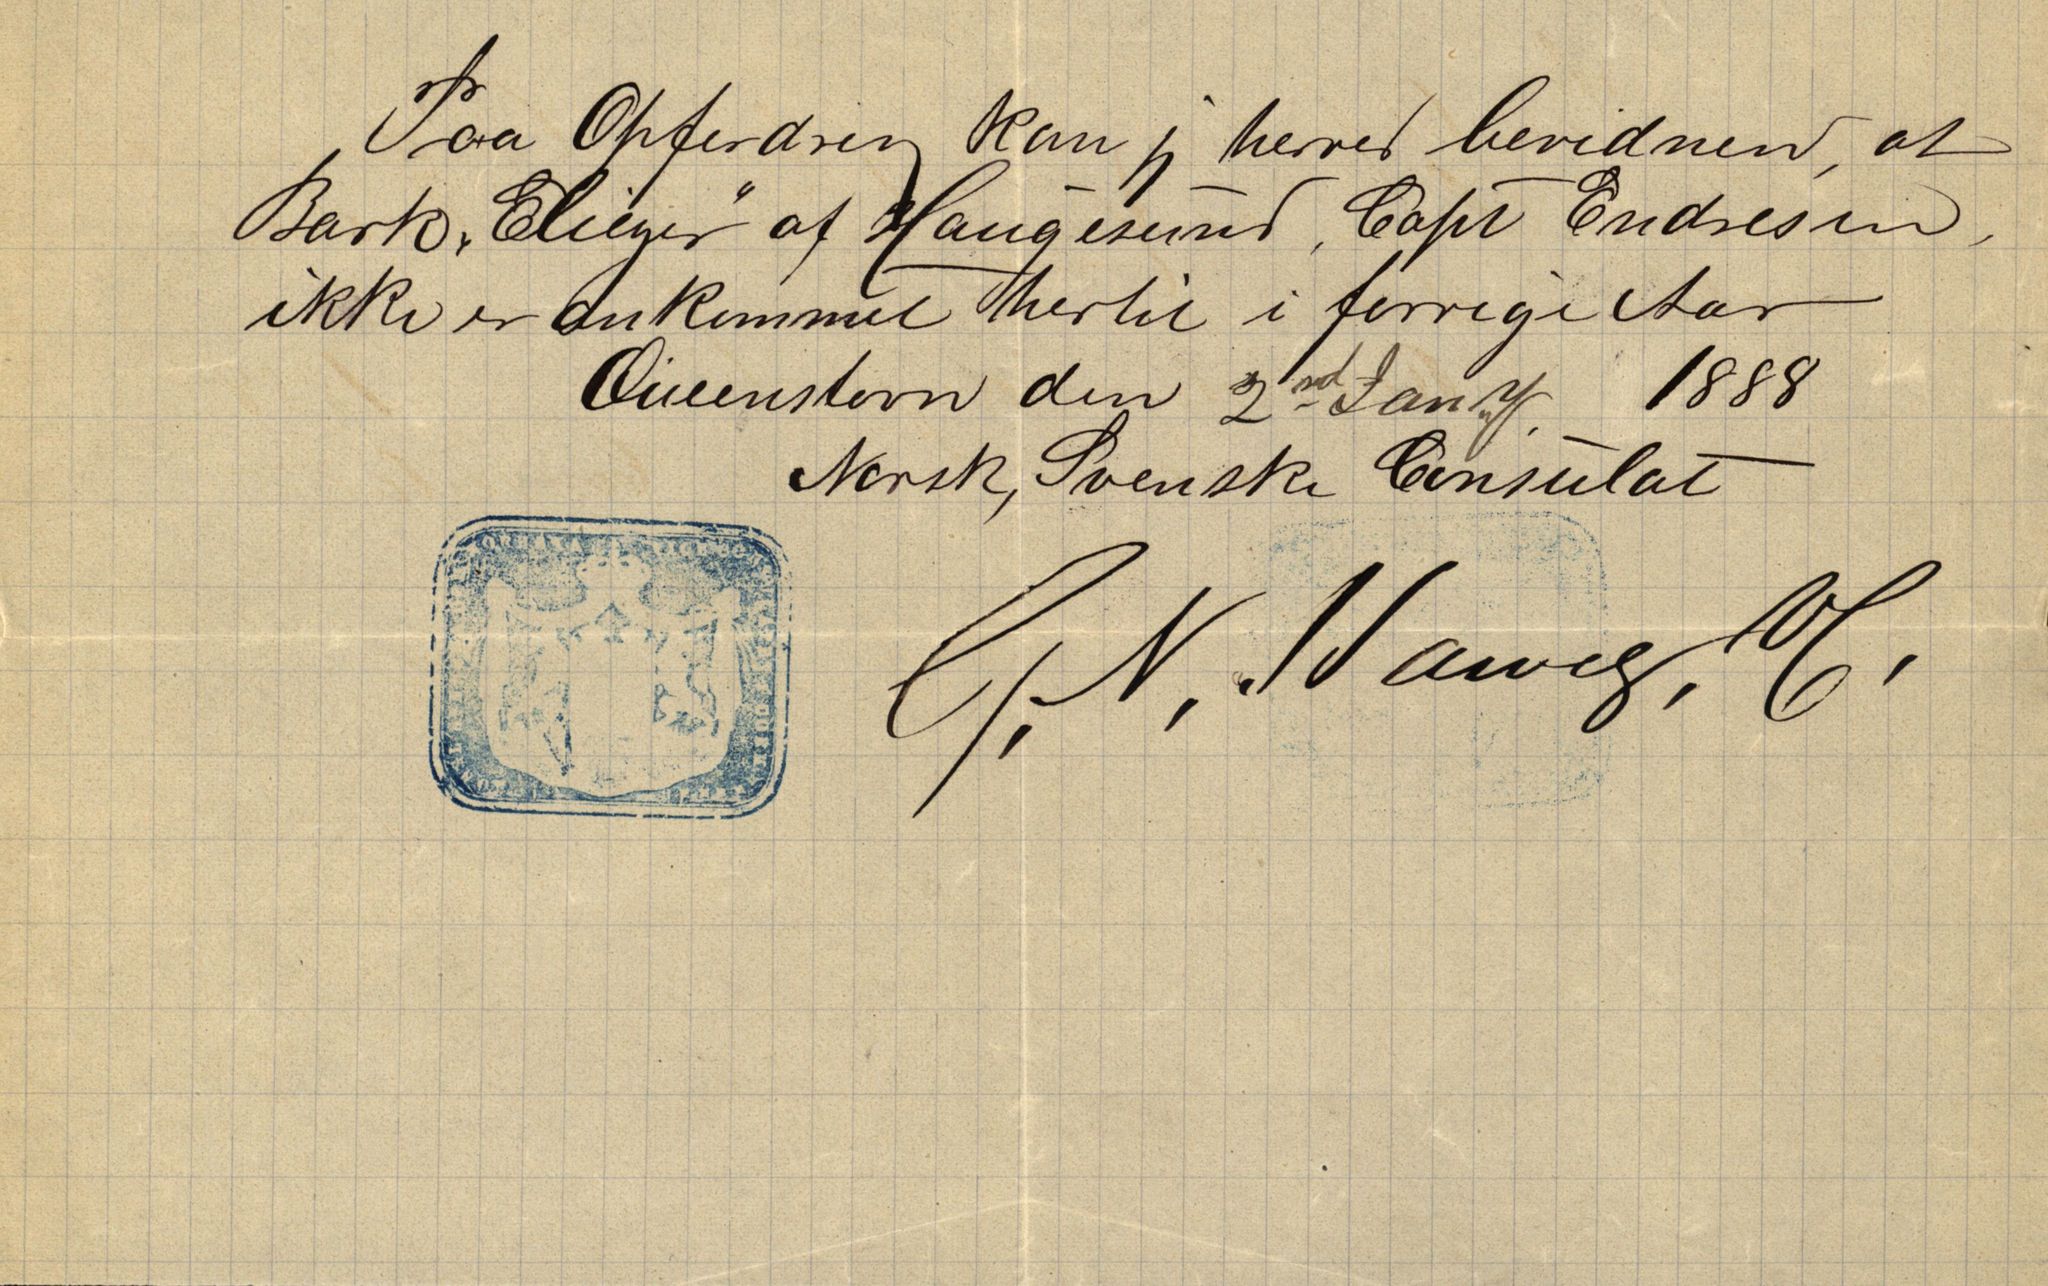 Paa Opferdring kan j herved bevidned, at
Bark „Eliezer" af Haugesund, Capt Endresen,
ikke er ankommet hertil i forrige Aar
Queenstown den 2nd Jany 1888
Norsk, Svenske Consulat
G. N. Harvey, V. C.